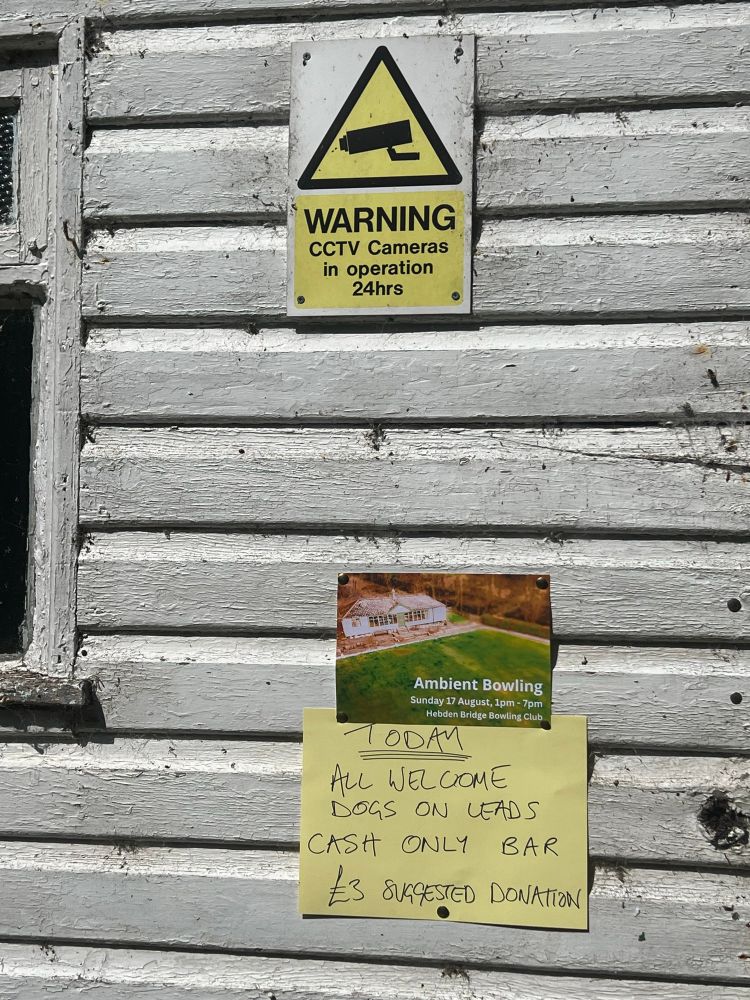 WARNING
CCTV Cameras
in operation
24hrs
Ambient Bowling
Sunday 17 August, 1pm - 7pm
Hebden Bridge Bowling Club
TODAY
ALL WELCOME
DOGS ON LEADS
CASH ONLY BAR
£3 SUGGESTED DONATION